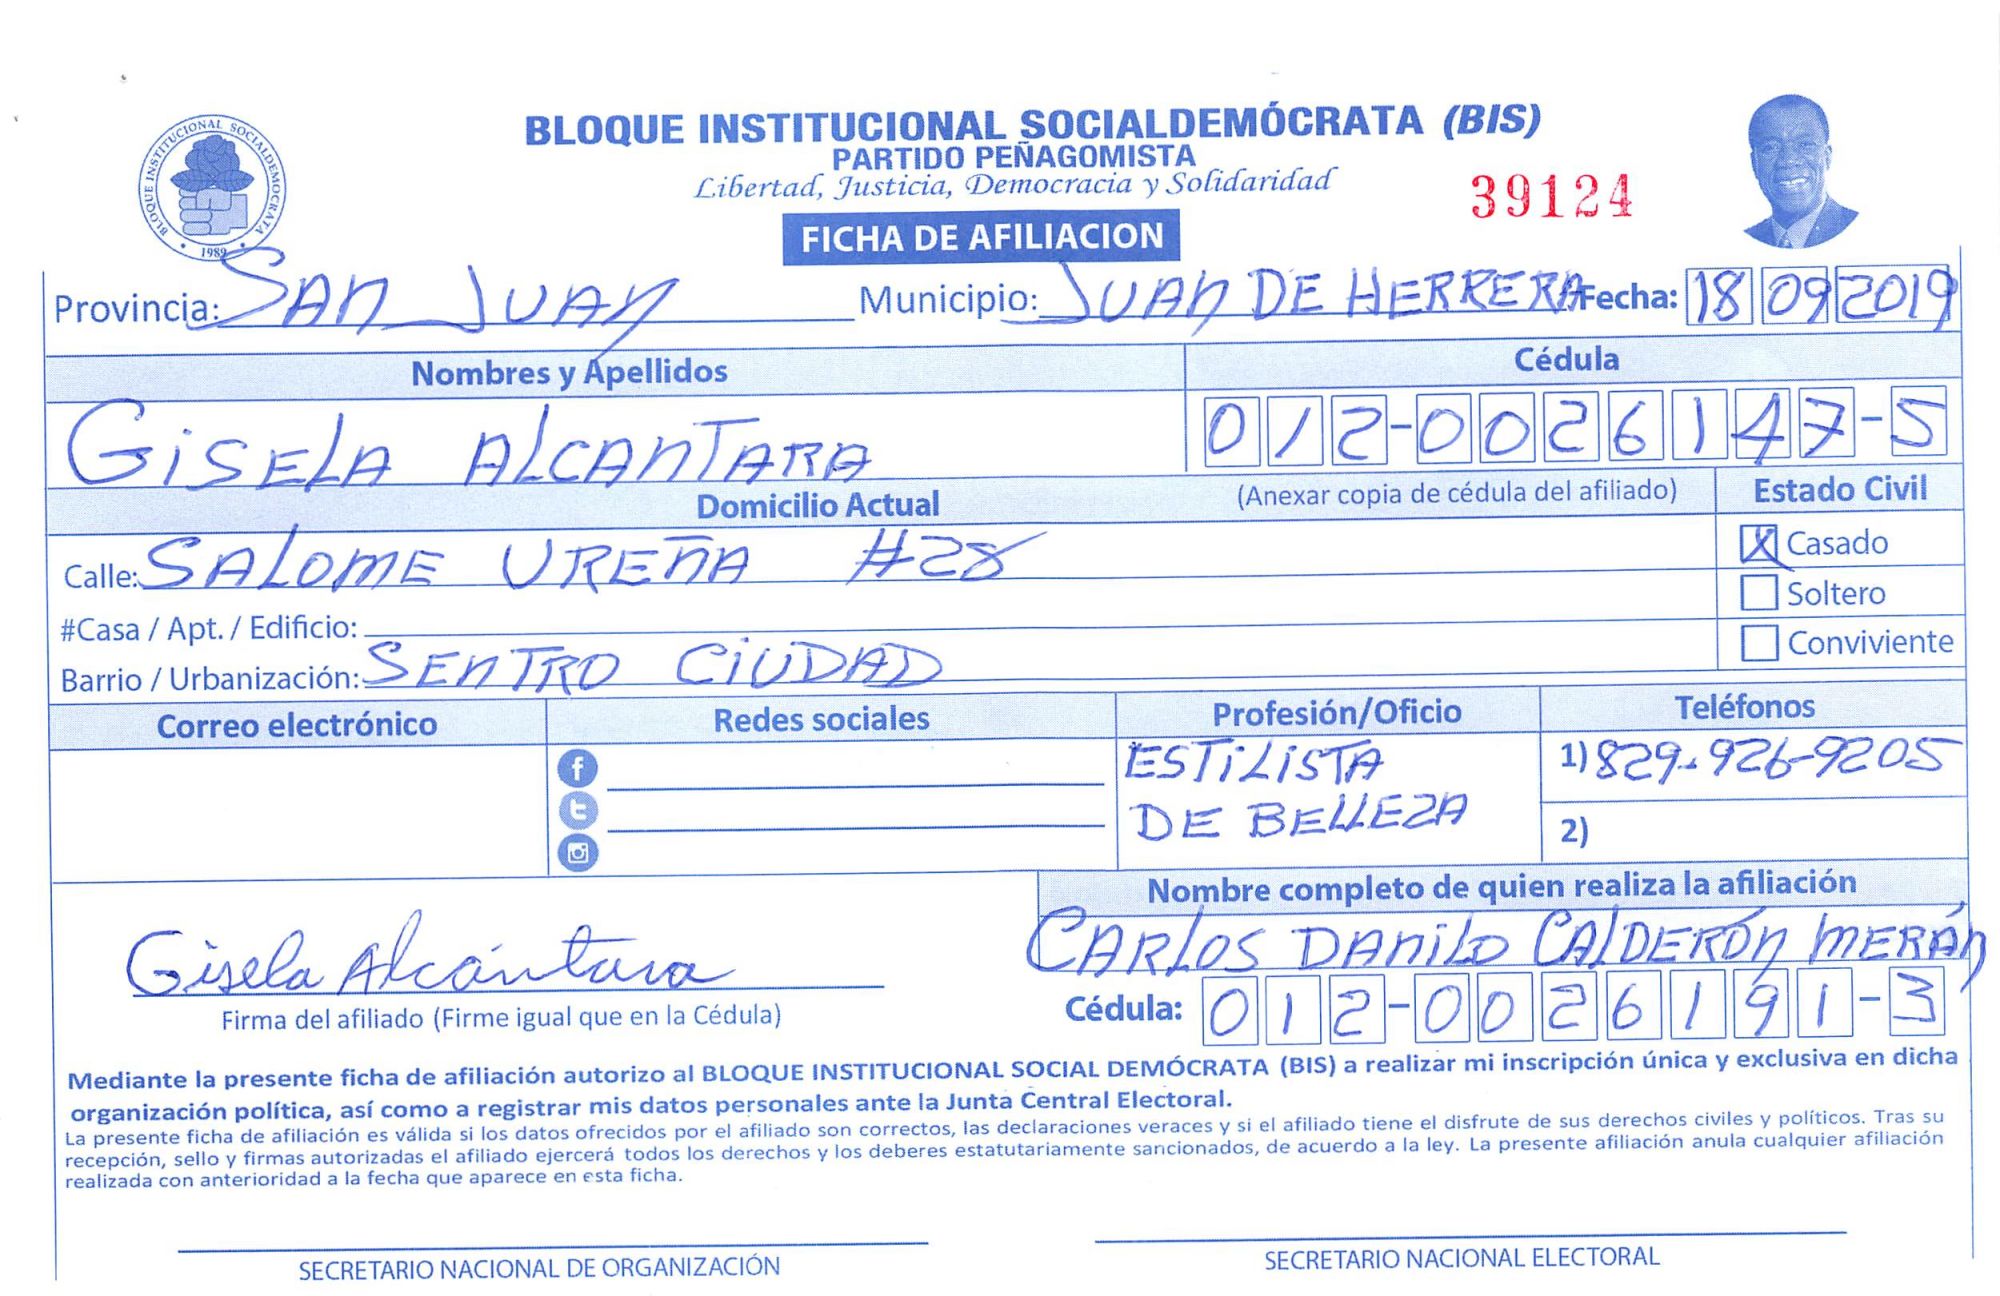 BLOQUE INSTITUCIONAL SOCIALDEMÓCRATA (BIS)
PARTIDO PEÑAGOMISTA
Libertad, Justicia, Democracia y Solidaridad
39124
BLOQUE INSTITUCIONAL SOCIALDEMOCRATA
1989
FICHA DE AFILIACION
Provincia: SAN JUAN Municipio: JUAN DE HERRERA Fecha: 18 09 2019
Nombres y Apellidos Cédula
GISELA ALCANTARA 012-0026147-5
Domicilio Actual (Anexar copia de cédula del afiliado) Estado Civil
Calle: SALOME UREÑA #28 X Casado
Soltero
#Casa / Apt. / Edificio:
Conviviente
Barrio / Urbanización: SENTRO CIUDAD
Correo electrónico Redes sociales Profesión/Oficio Teléfonos
ESTILISTA 1) 829-926-9205
DE BELLEZA 2)
Nombre completo de quien realiza la afiliación
Gisela Alcántara CARLOS DANILO CALDERÓN MERÁN
Firma del afiliado (Firme igual que en la Cédula) Cédula: 012-0026191-3
Mediante la presente ficha de afiliación autorizo al BLOQUE INSTITUCIONAL SOCIAL DEMÓCRATA (BIS) a realizar mi inscripción única y exclusiva en dicha
organización política, así como a registrar mis datos personales ante la Junta Central Electoral.
La presente ficha de afiliación es válida si los datos ofrecidos por el afiliado son correctos, las declaraciones veraces y si el afiliado tiene el disfrute de sus derechos civiles y políticos. Tras su
recepción, sello y firmas autorizadas el afiliado ejercerá todos los derechos y los deberes estatutariamente sancionados, de acuerdo a la ley. La presente afiliación anula cualquier afiliación
realizada con anterioridad a la fecha que aparece en esta ficha.
SECRETARIO NACIONAL DE ORGANIZACIÓN SECRETARIO NACIONAL ELECTORAL